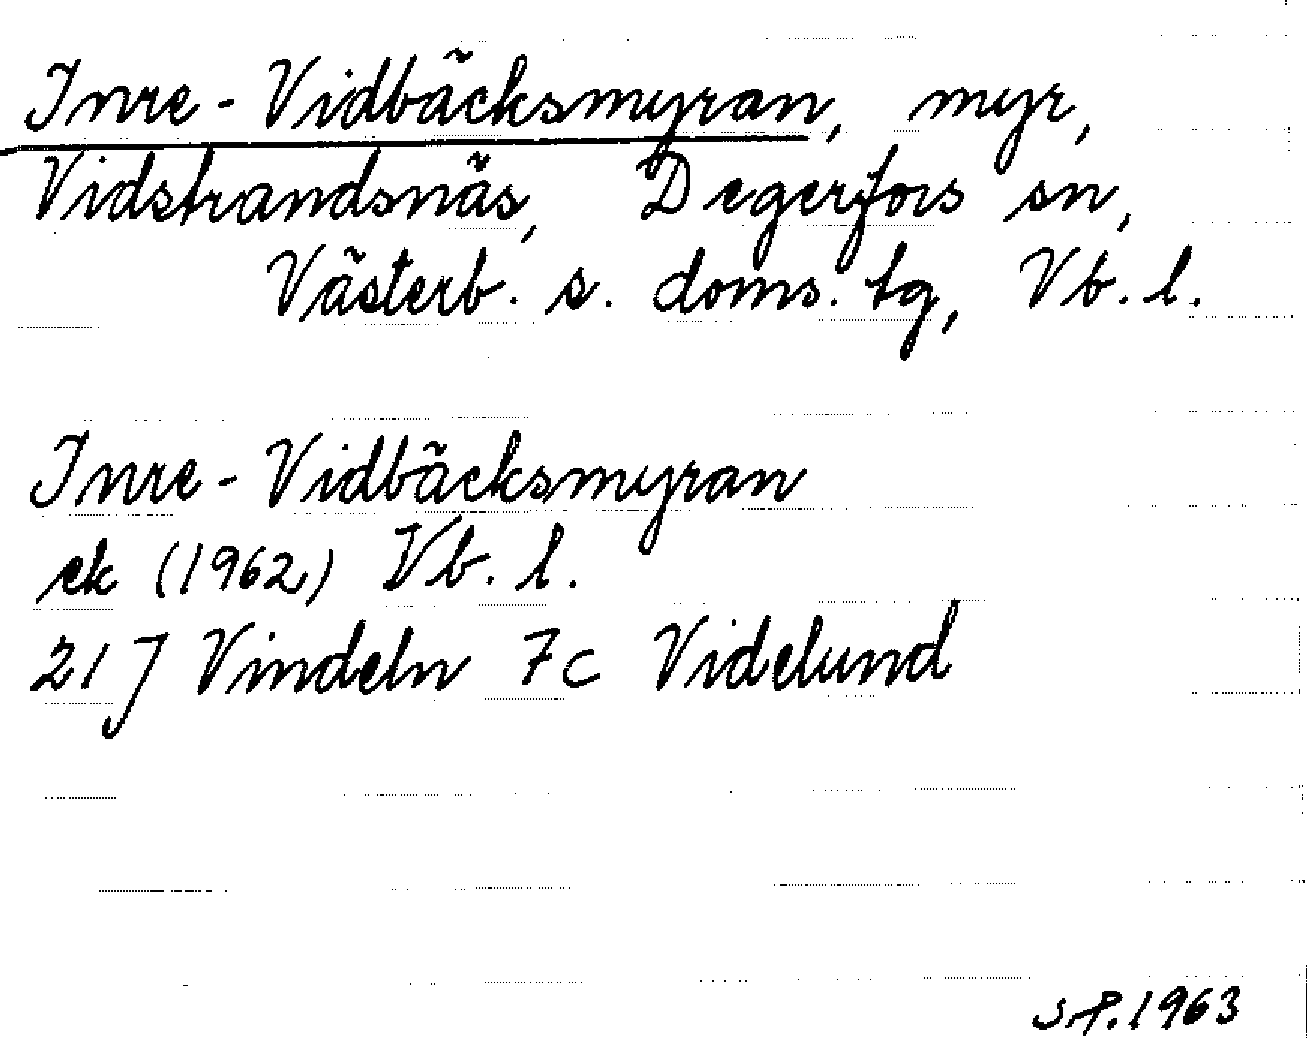 Inre-Vidbäcksmyran, myr,
Vidstrandsnäs, Degerfors sn,
Västerb. s. doms. tg, Vb. l.
Inre-Vidbäcksmyran
ek (1962) Vb. l.
21 J Vindeln 7c Videlund
1963